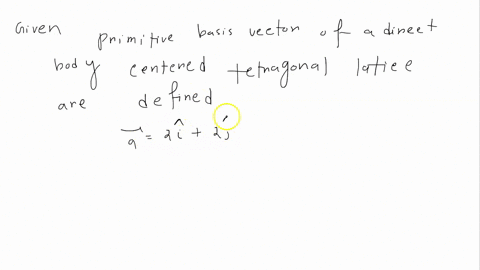 Given primitive basis vector of a direct
body centered tetragonal latice
are defined
a = 2i + 2j